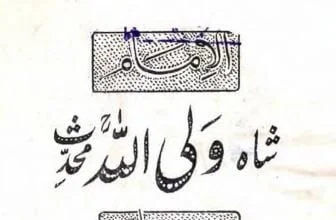 الامام
شاہ ولی اللہؒ محدث